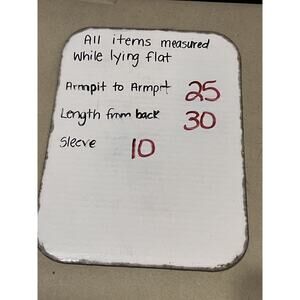 All items measured
while lying flat
Armpit to Armpit 25
Length from back 30
Sleeve 10